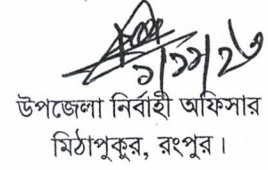 ১/১১/২৩
উপজেলা নির্বাহী অফিসার
মিঠাপুকুর, রংপুর।